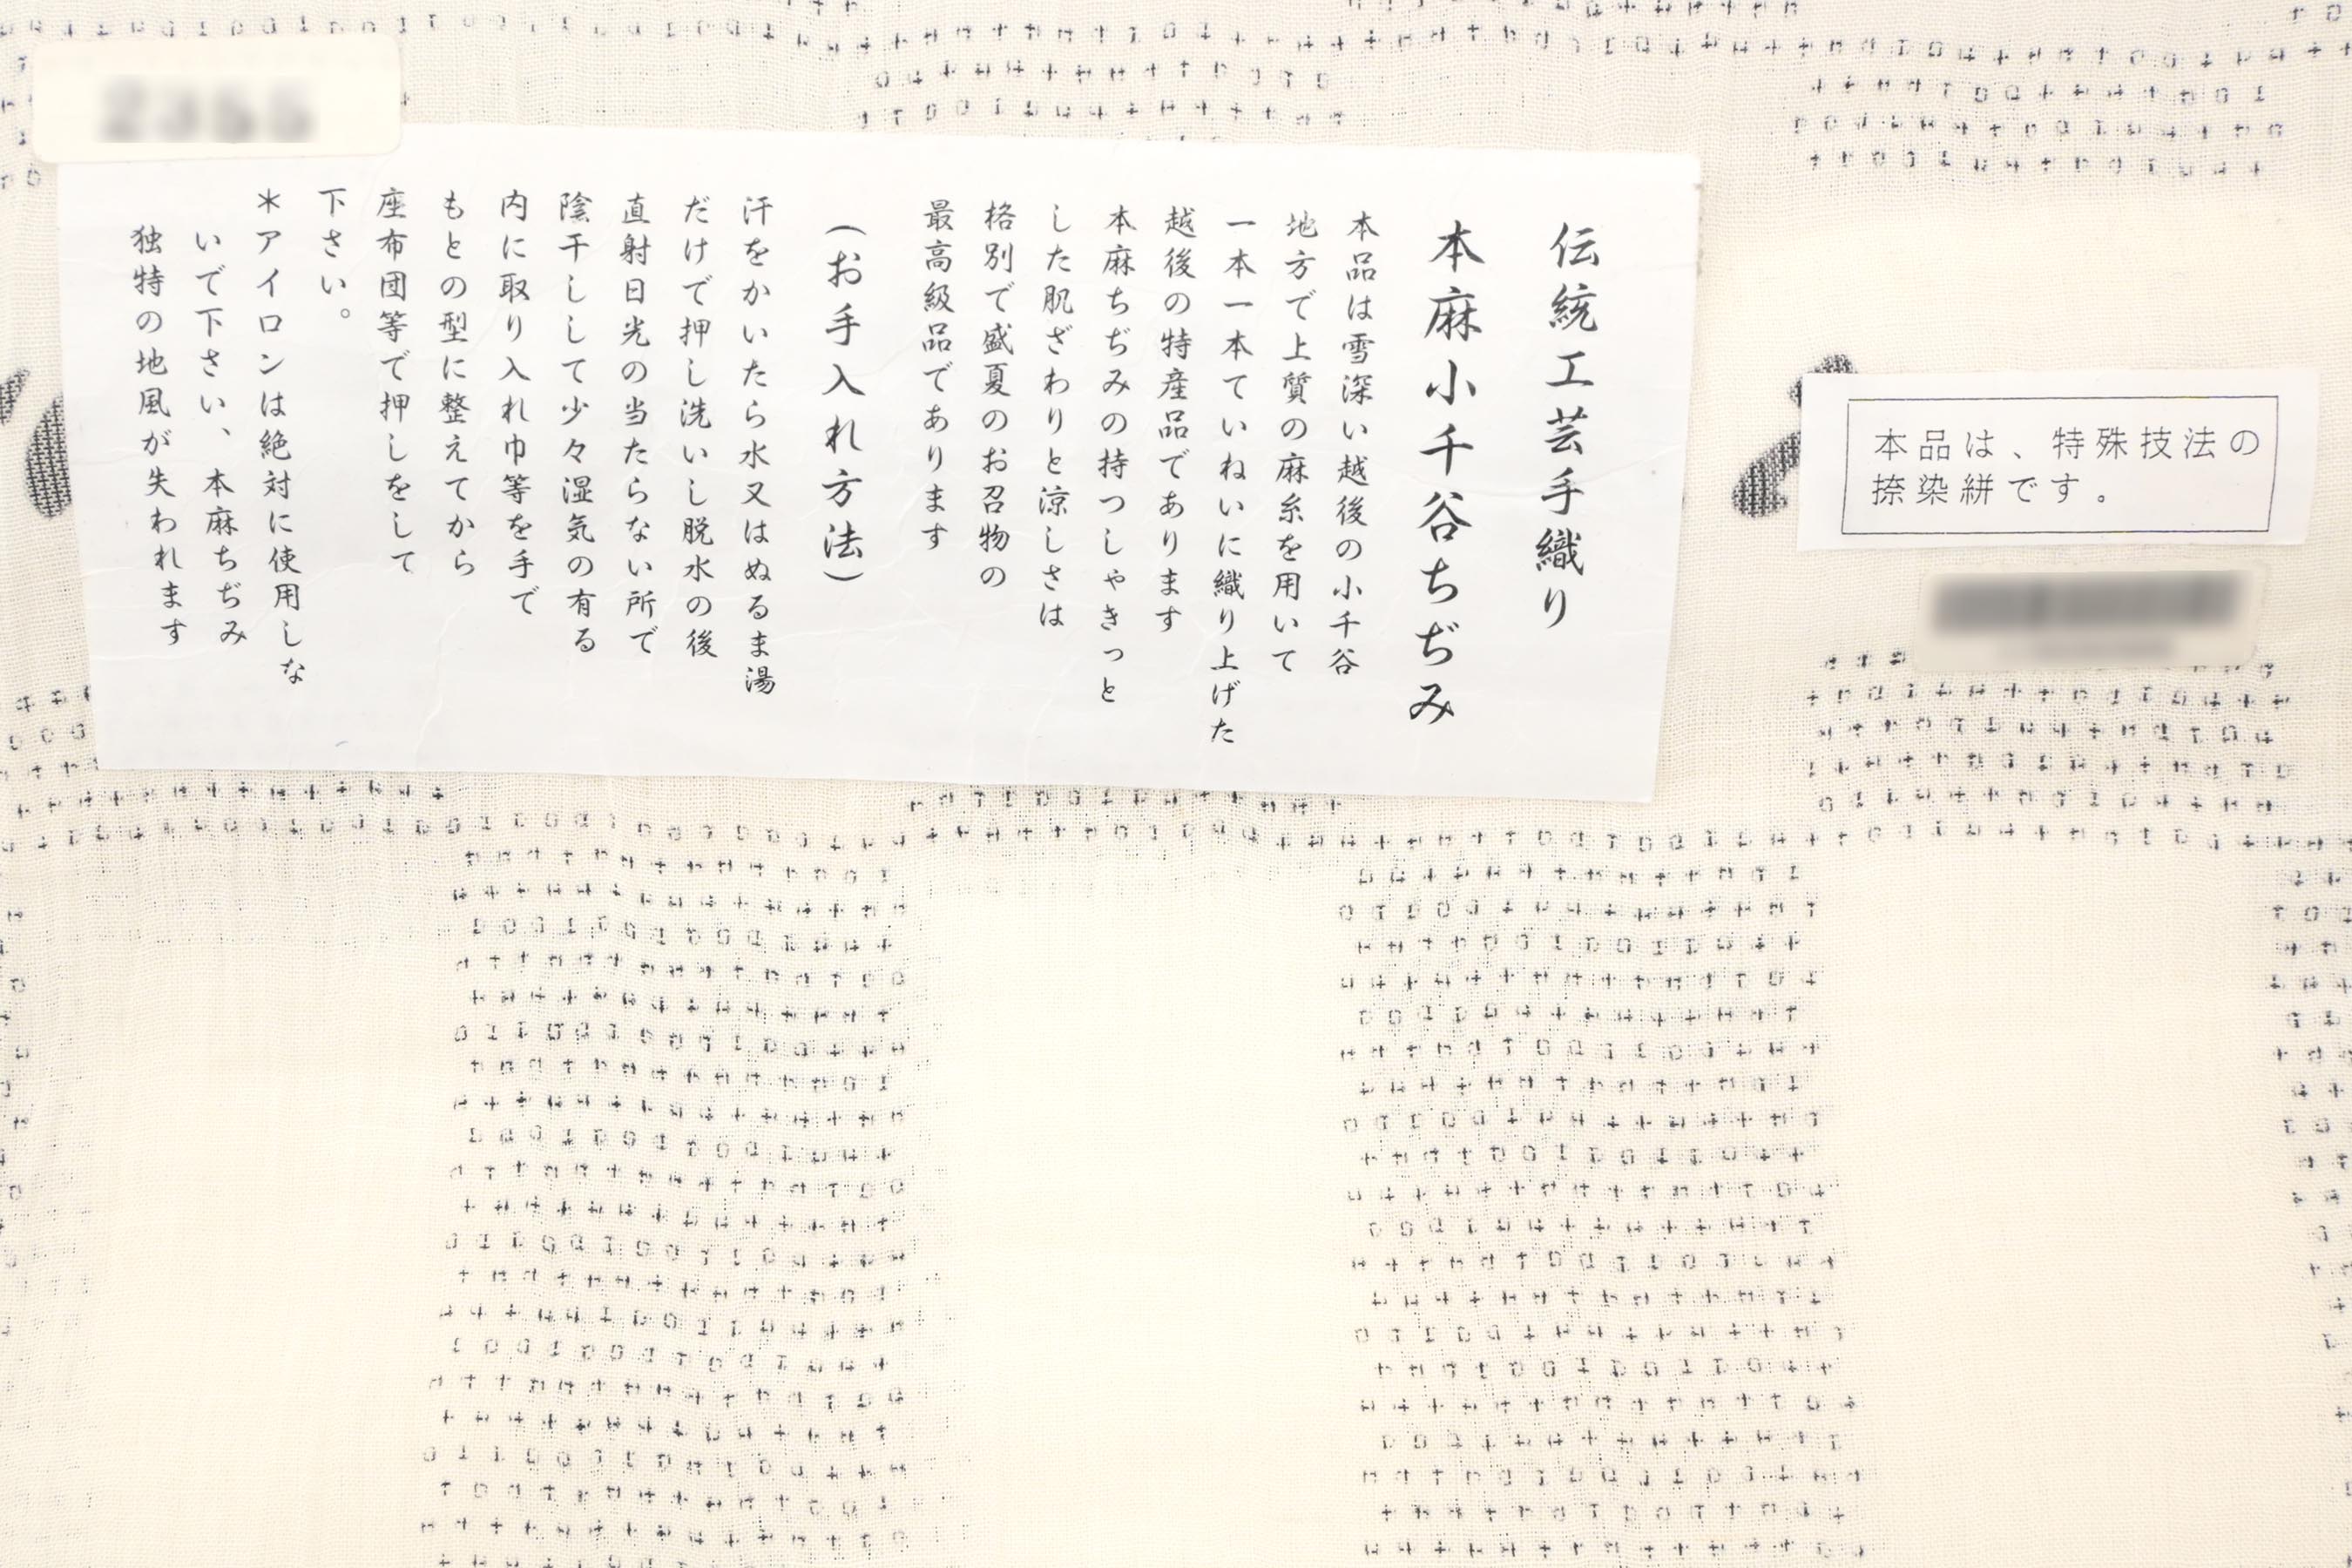 伝統工芸手織り
本麻小千谷ちぢみ
本品は雪深い越後の小千谷
地方で上質の麻糸を用いて
一本一本ていねいに織り上げた
越後の特産品であります
本麻ちぢみの持つしゃきっと
した肌ざわりと涼しさは
格別で盛夏のお召物の
最高級品であります
(お手入れ方法)
汗をかいたら水又はぬるま湯
だけで押し洗いし脱水の後
直射日光の当たらない所で
陰干しして少々湿気の有る
内に取り入れ巾等を手で
もとの型に整えてから
座布団等で押しをして
下さい。
*アイロンは絶対に使用しな
いで下さい、本麻ちぢみ
独特の地風が失われます
本品は、特殊技法の
捺染絣です。